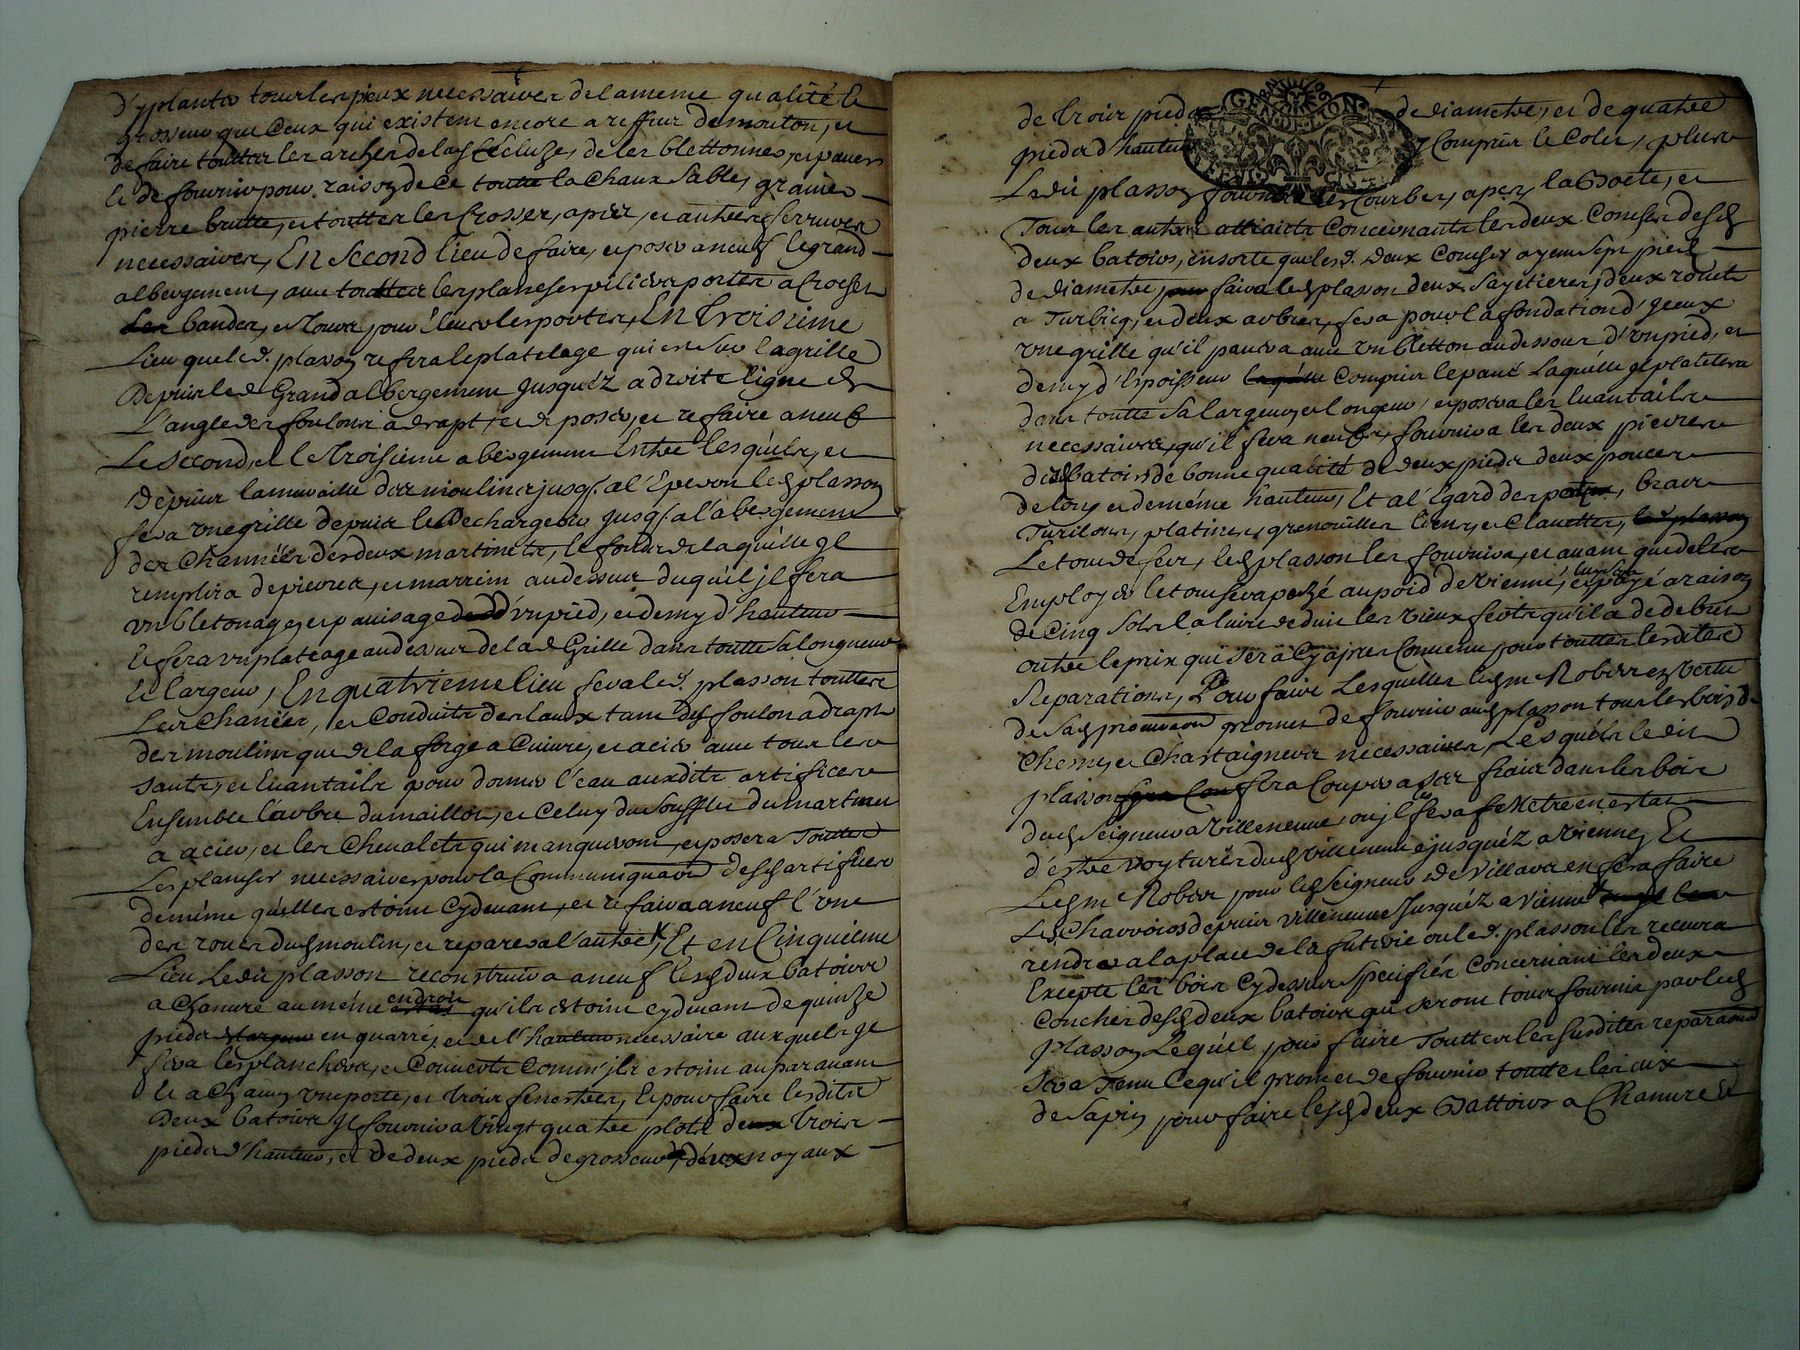 d'y planter tous les pieux necessaires de la meme qualité et
grosseur que Ceux qui existent encore a reffus de mouton, et
de faire touttes les arches de lad. Ecluze, de les blettonner, et paver
et de fournir pour raison de Ce toutte la Chaux Sable, graviers
pierre brutte, et touttes les Crosses, apis, et autres ferrures
necessaires, En Second lieu de faire, et poser a neuf le grand
albergement, avec touttes les planches piliers portes a Crochets
Les bandes, et Tours pour Elever les portes, En Troisieme
Lieu que led. plasson refera le platelage qui est sur la grille
Depuis led Grand albergement Jusquez a droite ligne de
L'angle des foulons a drapt, et de poser, et refaire a neuf
Le second, et le Troisieme abergement Entre lesquels, et
depuis la muraille des moulins jusq. a l'Eperon led plasson
fera une grille depuis le Dechargeoir jusq. a l'abergement
des Channées des deux martinets, le fonds de laquelle Jl
remplira de pierres, et marrein au dessus duquel jl fera
un bletonage, et pavisage d'un pied, et demy d'hauteur
et fera un plateage au dessus de lad Grille dans toutte sa longueur
et largeur, En quatrieme lieu fera led. plasson touttes
Les Chanées, et Conduits des Eaux tant des foulon a drapt
des moulins que de la forge a Cuivre, et acier avec tous les
sauts, et Evantails pour donner l'eau auxdits artifices
Ensemble l'arbre du maillot, et Celuy du soufflet du martinet
a acier, et les Chevalets qui manqueront, et posera Touttes
Les planches necessaires pour la Communication desd. artifices
de même qu'elles estoint cy devant, et refaira a neuf l'une
des roues dud. moulin, et reparera l'autre, Et en Cinquieme
Lieu Ledit plasson reconstruira a neuf lesd. deux batoirs
a Chanvre au même endroit qu'ils estoint cy devant de quinze
pieds en quarré, et de l'hauteur necessaire auxquels Jl
fera les planchers, et Couverts Comm'jls estoint auparavant
et a Chacun une porte, et trois fenestres, Et pour faire lesdits
Deux batoirs Jl fournira Vingt quatre plots deux trois
pieds d'hauteur, et de deux pieds de grosseur, deux noyaux
de trois pieds de diametre, et de quatre
pieds d'hauteur y Compris le Colet, plus
Ledit plasson fournira les Courbes, apes, la Boete, et
Tous les autres attraits Concernants les deux Conches desd.
deux batoirs, en sorte que lesd. deux Conches ayent Sept pieds
de diametre faira led plasson deux Sayetieres, deux rouets
a Turbiq, et deux arbres, fera pour la fondation d'yceux
une grille qu'il pavera avec un bletton au dessous d'un pied, et
demy d'Epoisseur Compris le pavé Laquelle jl platelera
dans toutte sa largeur, et longeur, et posera les Evantails
necessaires, qu'il fera neufs, fournira les deux pierres
desd batoirs de bonne qualité de deux pieds deux pouces
de long et de même hauteur, Et a l'Egard des bras
Turillons, platines, grenoüilles liens, et Clavettes,
Le tout de fer, led plasson les fournira, et avant que de les
Employer le tout sera pezé au poid de Vienne, et payé a raison
de Cinq Sols la livre deduit les vieux fers qu'il a de debris
outre le prix qui sera Cy apres Convenu pour touttes lesdites
Reparations, Pour faire Lesquelles led. Sr Robin en Vertu
de sad. procuration promet de fournir aud plasson tous les bois de
Chesne, et Chastaigniers necessaires, Lesquels ledit
plasson fera Couper a ses frais dans les bois
dud Seigneur a Villeneuve, ou jl les fera Mettre en estat
d'estre voyturés dud. Villeneuve jusquéz a Vienne, Et
Led Sr Robin pour led. Seigneur de Villars en fera faire
Les Charrois depuis Villeneuve Jusquéz a Vienne
rendre a la place de la futerie ou led. plasson les recevra
Excepté les bois Cy dessus Specifiés Concernant les deux
Conches desd deux batoirs qui seront tous fournis par led
plasson Lequel pour faire Touttes les susdites reparations
sera Tenu Ce qu'il promet de fournir touttes les aix
de Sapin pour faire lesd deux Battoirs a Chanvre et